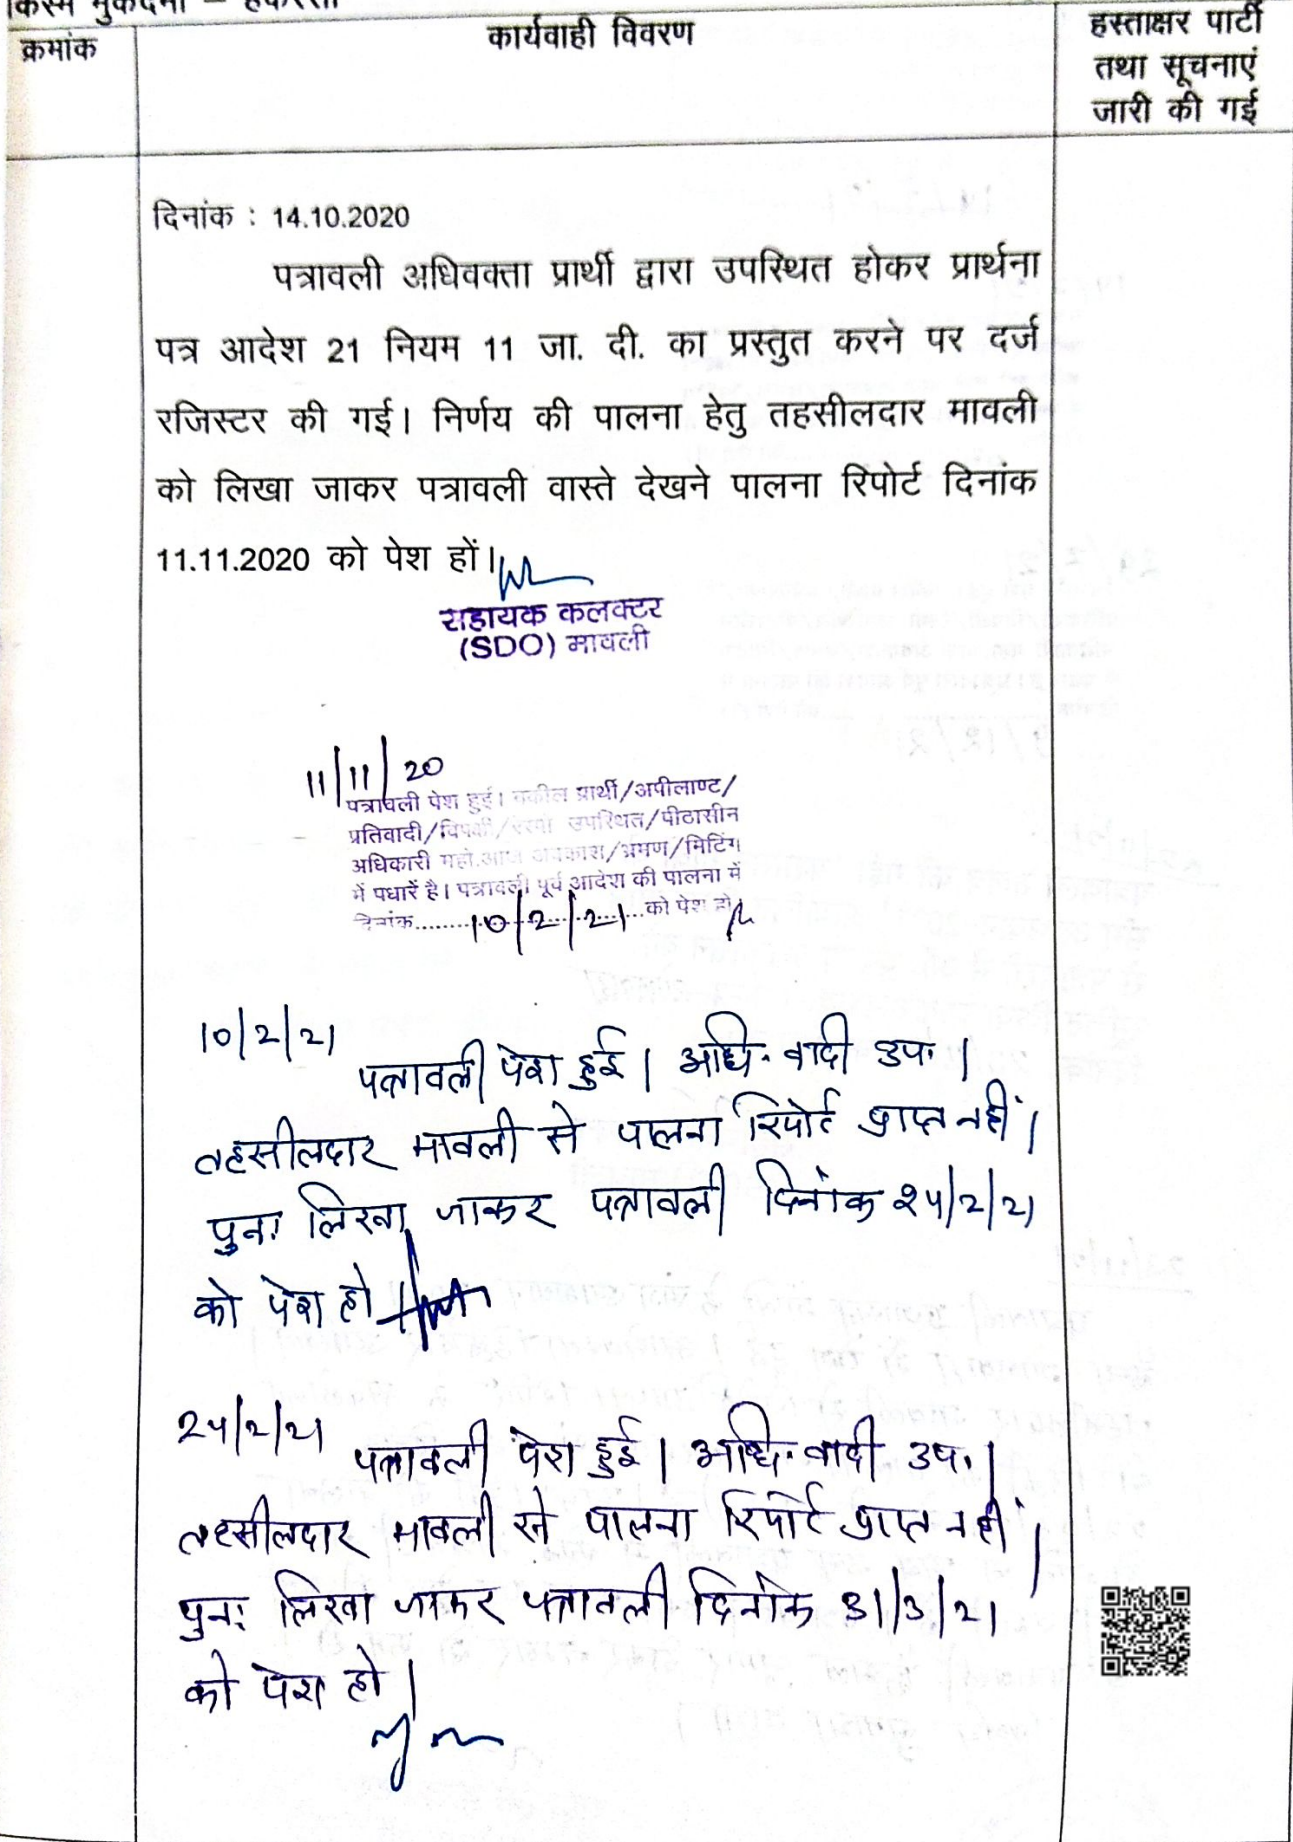 किस्म मुकदमा –
क्रमांक
कार्यवाही विवरण
हस्ताक्षर पार्टी
तथा सूचनाएं
जारी की गई
दिनांक : 14.10.2020
पत्रावली अधिवक्ता प्रार्थी द्वारा उपस्थित होकर प्रार्थना
पत्र आदेश 21 नियम 11 जा. दी. का प्रस्तुत करने पर दर्ज
रजिस्टर की गई। निर्णय की पालना हेतु तहसीलदार मावली
को लिखा जाकर पत्रावली वास्ते देखने पालना रिपोर्ट दिनांक
11.11.2020 को पेश हों।
सहायक कलक्टर
(SDO) मावली
11/11/20
पत्रावली पेश हुई। वकील प्रार्थी/अपीलाण्ट/
प्रतिवादी/विपक्षी/ उपस्थित/पीठासीन
अधिकारी महो.आज अवकाश/भ्रमण/मिटिंग
में पधारें है। पत्रावली पूर्व आदेश की पालना में
दिनांक.........10/2/21...को पेश हो।
10/2/21
पत्रावली पेश हुई। अधि. वादी उप.।
तहसीलदार मावली से पालना रिपोर्ट प्राप्त नहीं।
पुनः लिखा जाकर पत्रावली दिनांक 24/2/21
को पेश हो।
24/2/21
पत्रावली पेश हुई। अधि. वादी उप.।
तहसीलदार मावली से पालना रिपोर्ट प्राप्त नहीं।
पुनः लिखा जाकर पत्रावली दिनांक 31/3/21
को पेश हो।